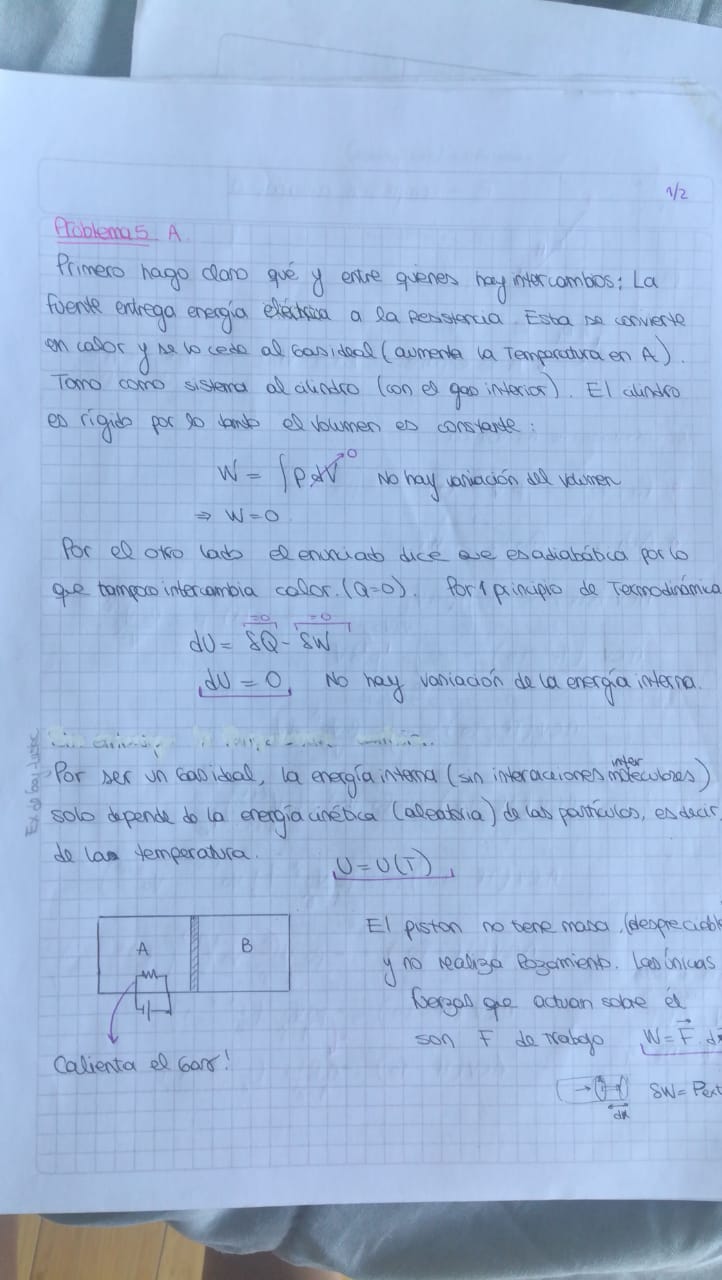 1/2
Problema 5 A.
Primero hago claro qué y entre quienes hay intercambios: La
fuente entrega energía eléctrica a la Resistencia. Esta se convierte
en calor y se lo cede al Gas ideal (aumenta la Temperatura en A).
Tomo como sistema al cilindro (con el gas interior). El cilindro
es rígido por lo tanto el volumen es constante:
W = ∫ P dV → 0 No hay variación del volumen
⇒ W=0
Por el otro lado el enunciado dice que es adiabática por lo
que tampoco intercambia calor. (Q=0). Por 1 principio de Termodinámica
=0 =0
dU = δQ - δW
dU = 0 No hay variación de la energía interna.
Por ser un Gas ideal, la energía interna (sin interacciones inter moleculares)
solo depende de la energía cinética (aleatoria) de las partículas, es decir,
de la temperatura. U=U(T)
El piston no tiene masa (despreciable
A B
y no realiza Rozamiento. Las únicas
fuerzas que actuan sobre él
son F de trabajo W=F⃗.
Calienta el Gas!
δW= Pext
dx